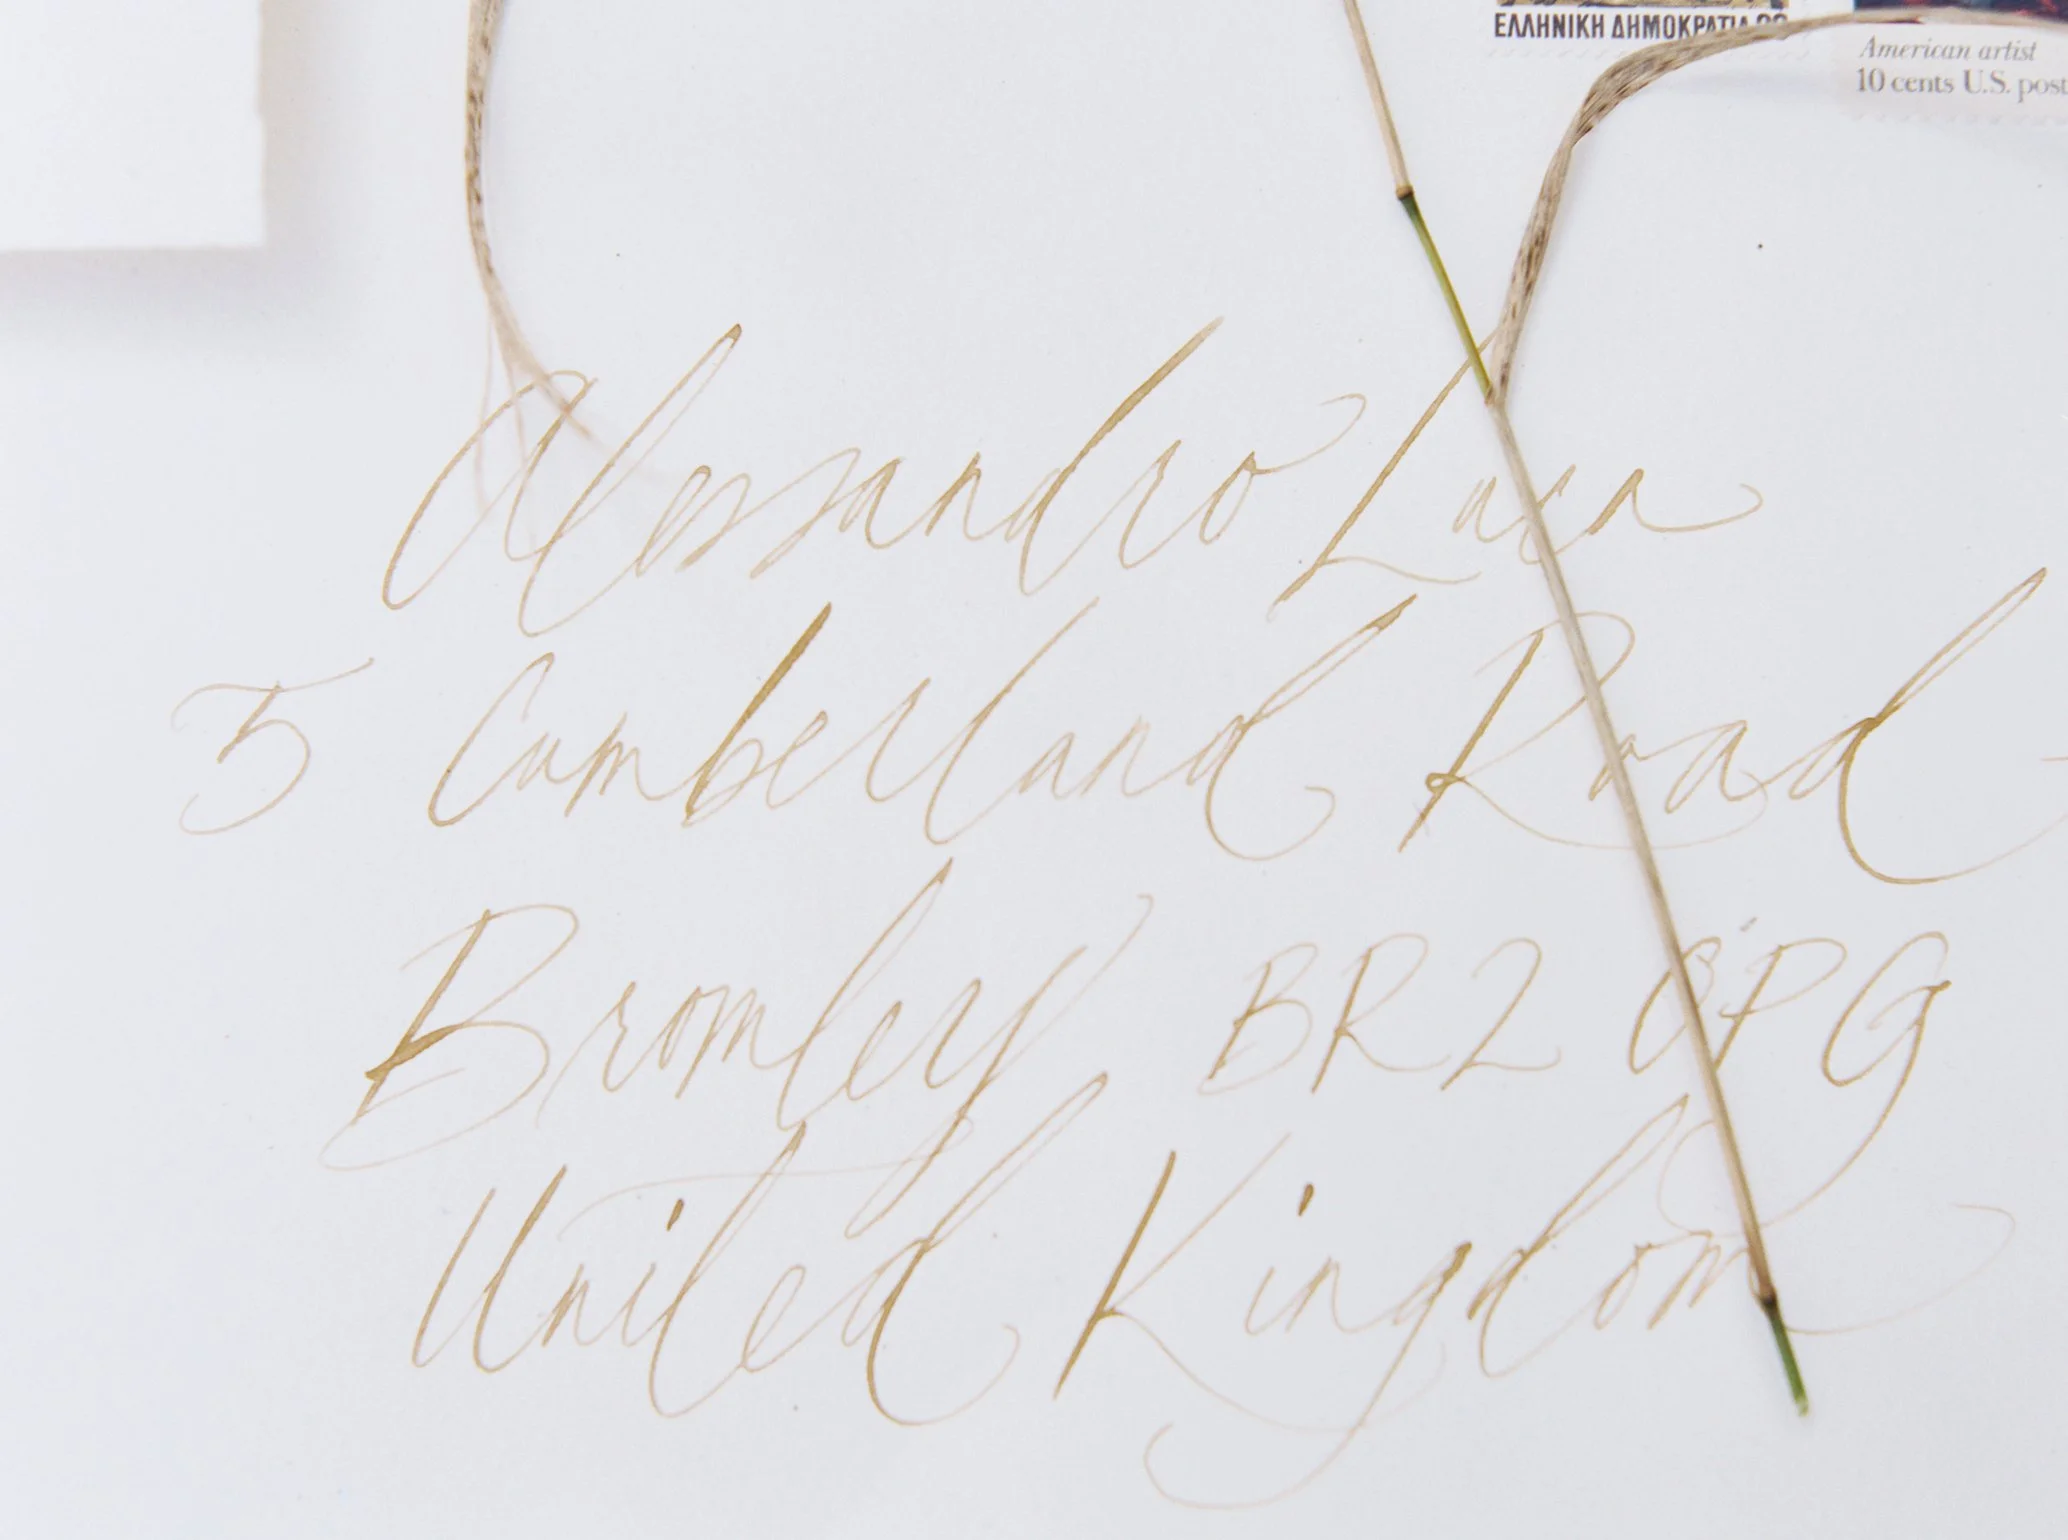 ΕΛΛΗΝΙΚΗ ΔΗΜΟΚΡΑΤΙΑ
American artist
10 cents U.S. post
Alessandro
5 Cumberland Road
Bromley BR2 0PG
United Kingdom